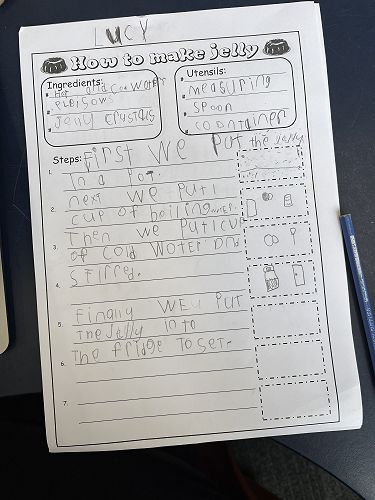 LUCY
How to make jelly
Ingredients:
Hot and Cod Woter
Jelly Crustals
Utensils:
measuring
spoon
coontainer
Steps:
First we Put the Jelly
1. In a Pot.
next we Put 1
2. cup of boiling
Then we Put 1 cup
3. of cold Woter and
4. Stirred.
Finally we Put
5. The Jelly in to
The fridge To Set.
6.
7.